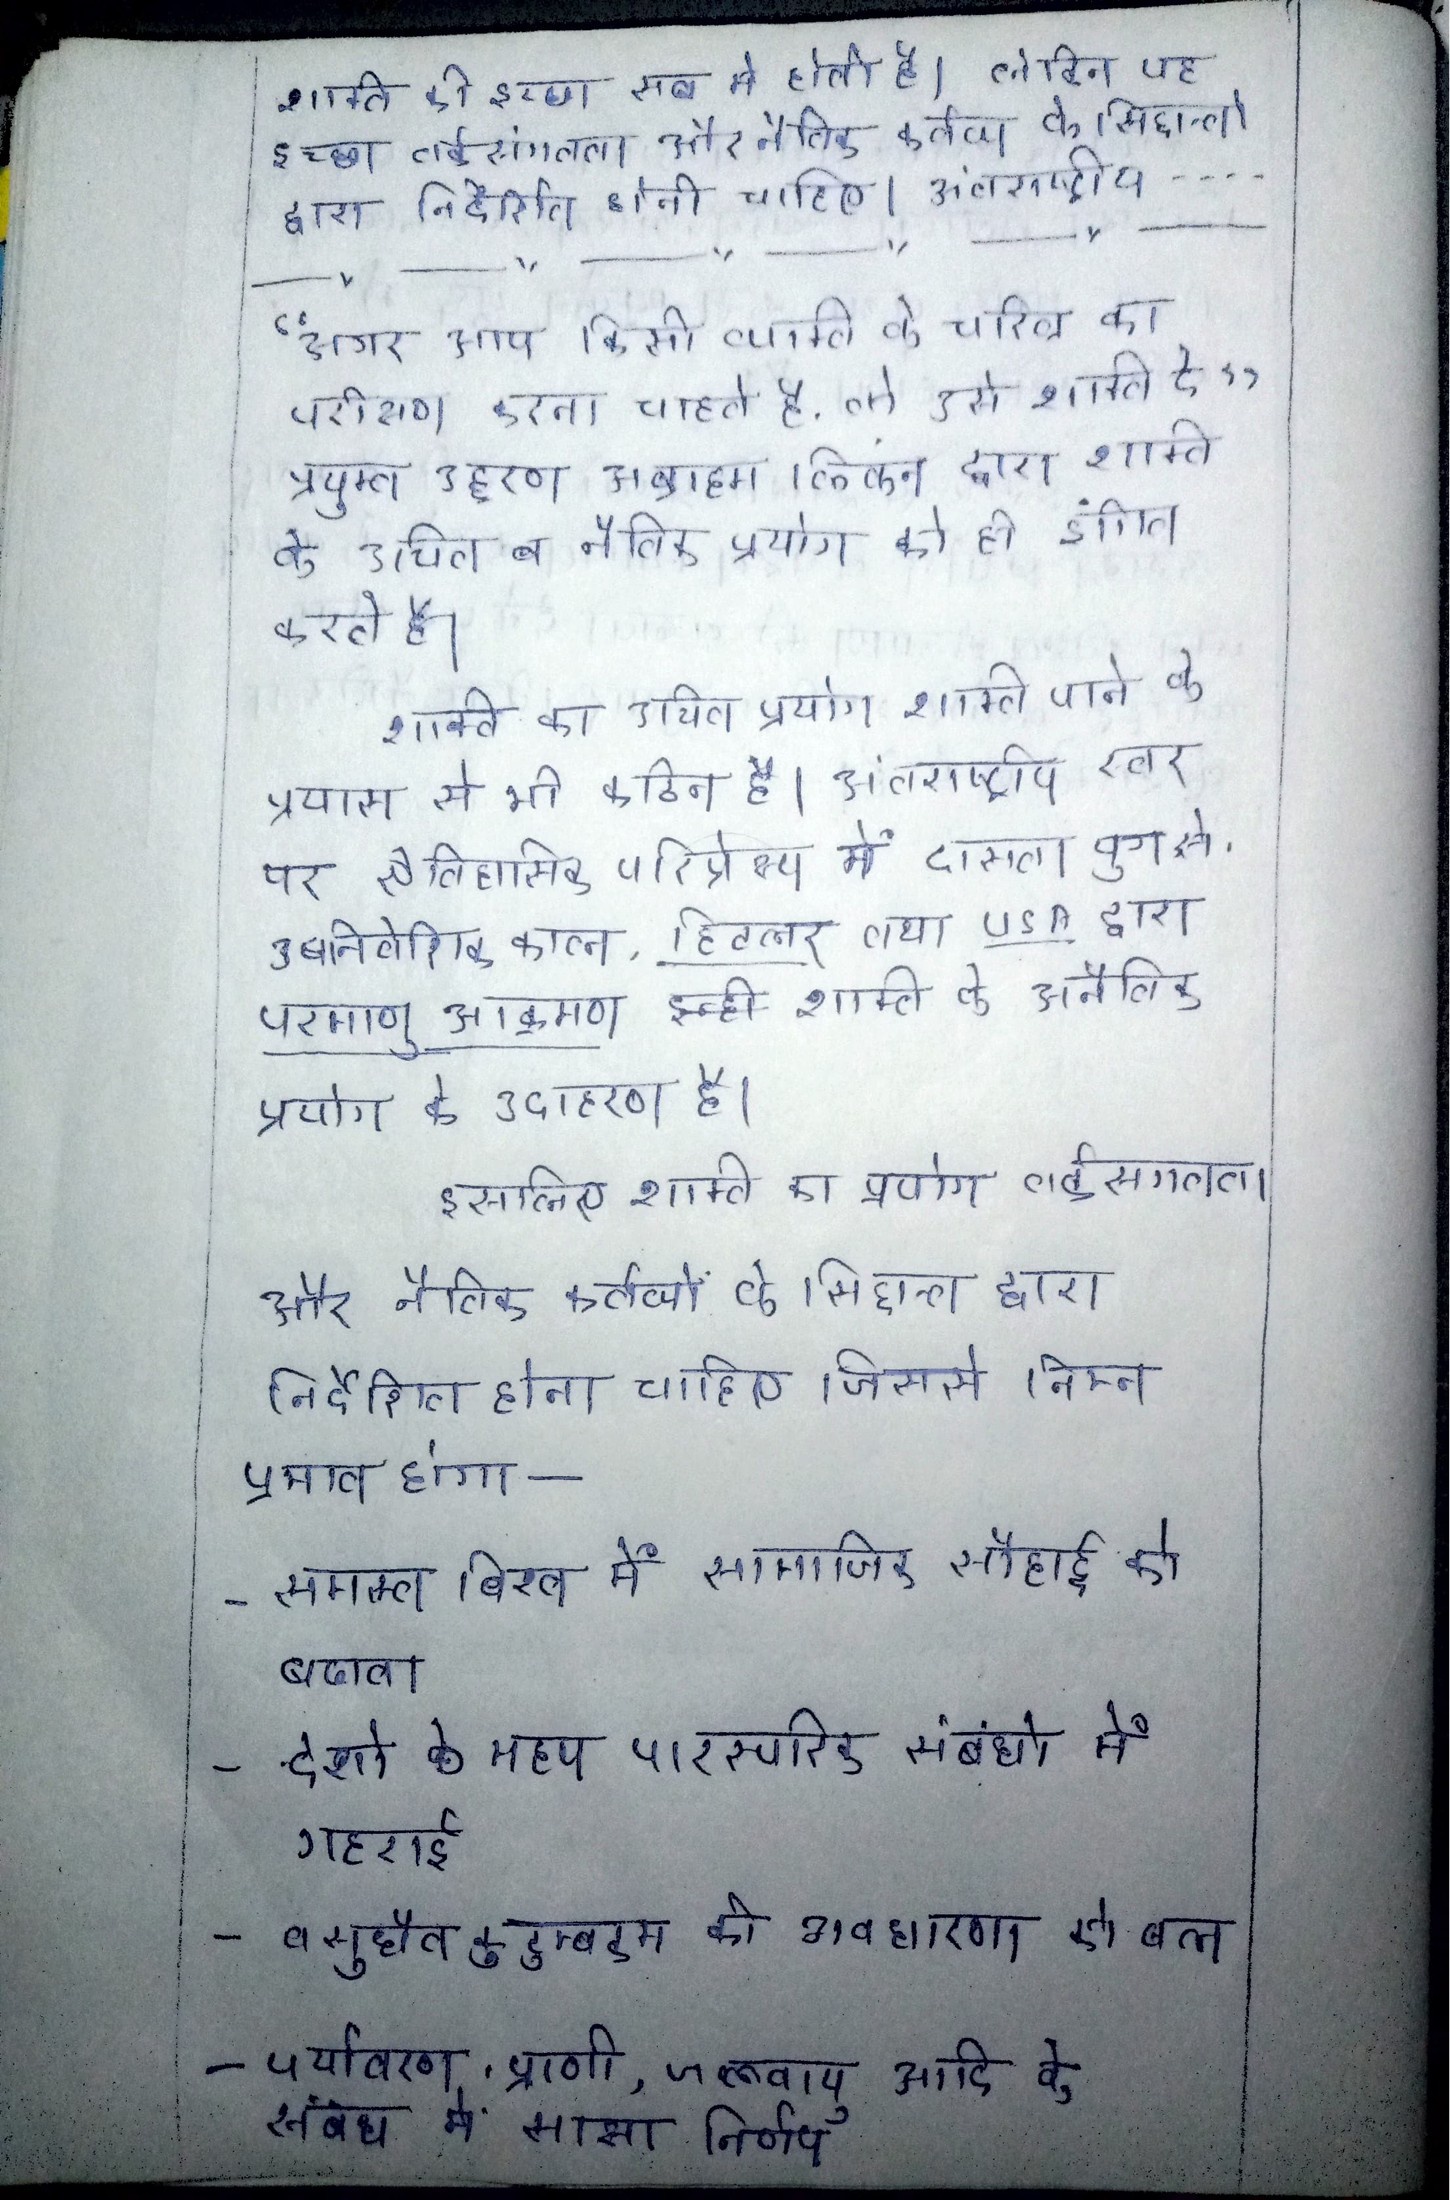 शक्ति की इच्छा सब मे होती है। लेकिन यह
इच्छा तर्कसंगतता और नैतिक कर्तव्य के सिद्दान्तो
द्वारा निर्देर्शित होनी चाहिए। अंतराष्ट्रीय ----
“अगर आप किसी व्यक्ति के चरित्र का
परीक्षण करना चाहते है, तो उसे शक्ति दे”
प्रयुक्त उद्दरण अब्राहम लिंकन द्वारा शक्ति
के उचित व नैतिक प्रयोग को ही इंगित
करते है।
शक्ति का उचित प्रयोग शक्ति पाने के
प्रयास से भी कठिन है। अंतराष्ट्रीय स्तर
पर ऐतिहासिक परिप्रेक्ष्य में दासता युग से,
उपनिवेशिक काल, हिटलर तथा USA द्वारा
परमाणु आक्रमण इन्ही शक्ति के अनैतिक
प्रयोग के उदाहरण है।
इसलिए शक्ति का प्रयोग तर्कसगतता
और नैतिक कर्तव्यों के सिद्दान्त द्वारा
निर्देशित होना चाहिए जिससे निम्न
प्रभाव होगा —
- समस्त विश्व में सामाजिक सौहार्द को
बढावा
- देशो के मध्य पारस्परिक संबंधो में
गहराई
- वसुधैव कुटुम्बकम की अवधारणा को बल
- पर्यावरण, प्राणी, जलवायु आदि के
संबंध में साझा निर्णय